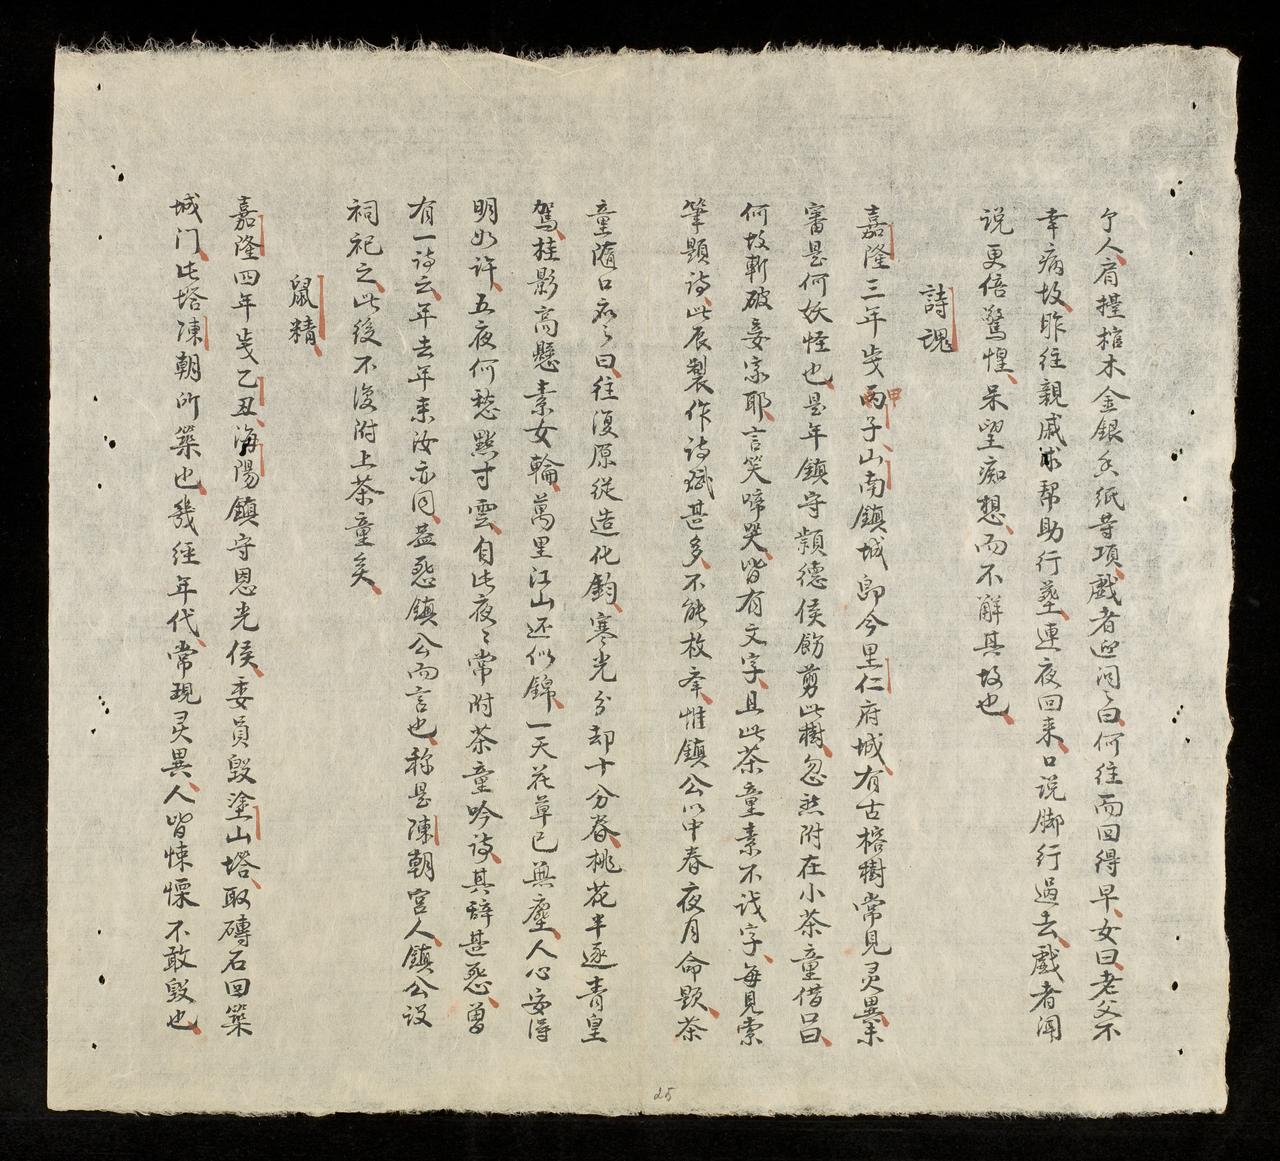 个人肩擡棺木金銀香紙等項戲者迎问〻曰何往而回得早女曰老父不
幸病故昨往親戚求帮助行𦵏連夜回来口说脚行過去戲者闻
说更倍驚惶呆望痴想而不解其故也
詩塊
嘉隆三年歲丙甲子山南鎮城即今里仁府城有古榕樹常見灵異未
審是何妖怪也是年鎮守潁德侯飭剪此樹忽然附在小茶童借口曰
何故斬破妾家耶言笑啼哭皆有文字且此茶童素不识字每見索
筆題诗此辰製作诗赋甚多不能枚举惟鎮公以中春夜月命題茶
童隨口应之曰往復原従造化鈞寒光分却十分春桃花半逐青皇
駕桂影高懸素女輪萬里江山还似錦一天花草已無塵人心安得
明如许五夜何愁點寸雲自此夜〻常附茶童吟诗其辞甚怨曾
有一诗云年去年来汝亦同盖怨鎮公而言也称是陳朝宫人鎮公设
祠祀之此後不復附上茶童矣
鼠精
嘉隆四年歲乙丑海陽鎮守恩光侯委員毁塗山塔取磚石回築
城门此塔陳朝所築也幾經年代常現灵異人皆悚慄不敢毁也
25